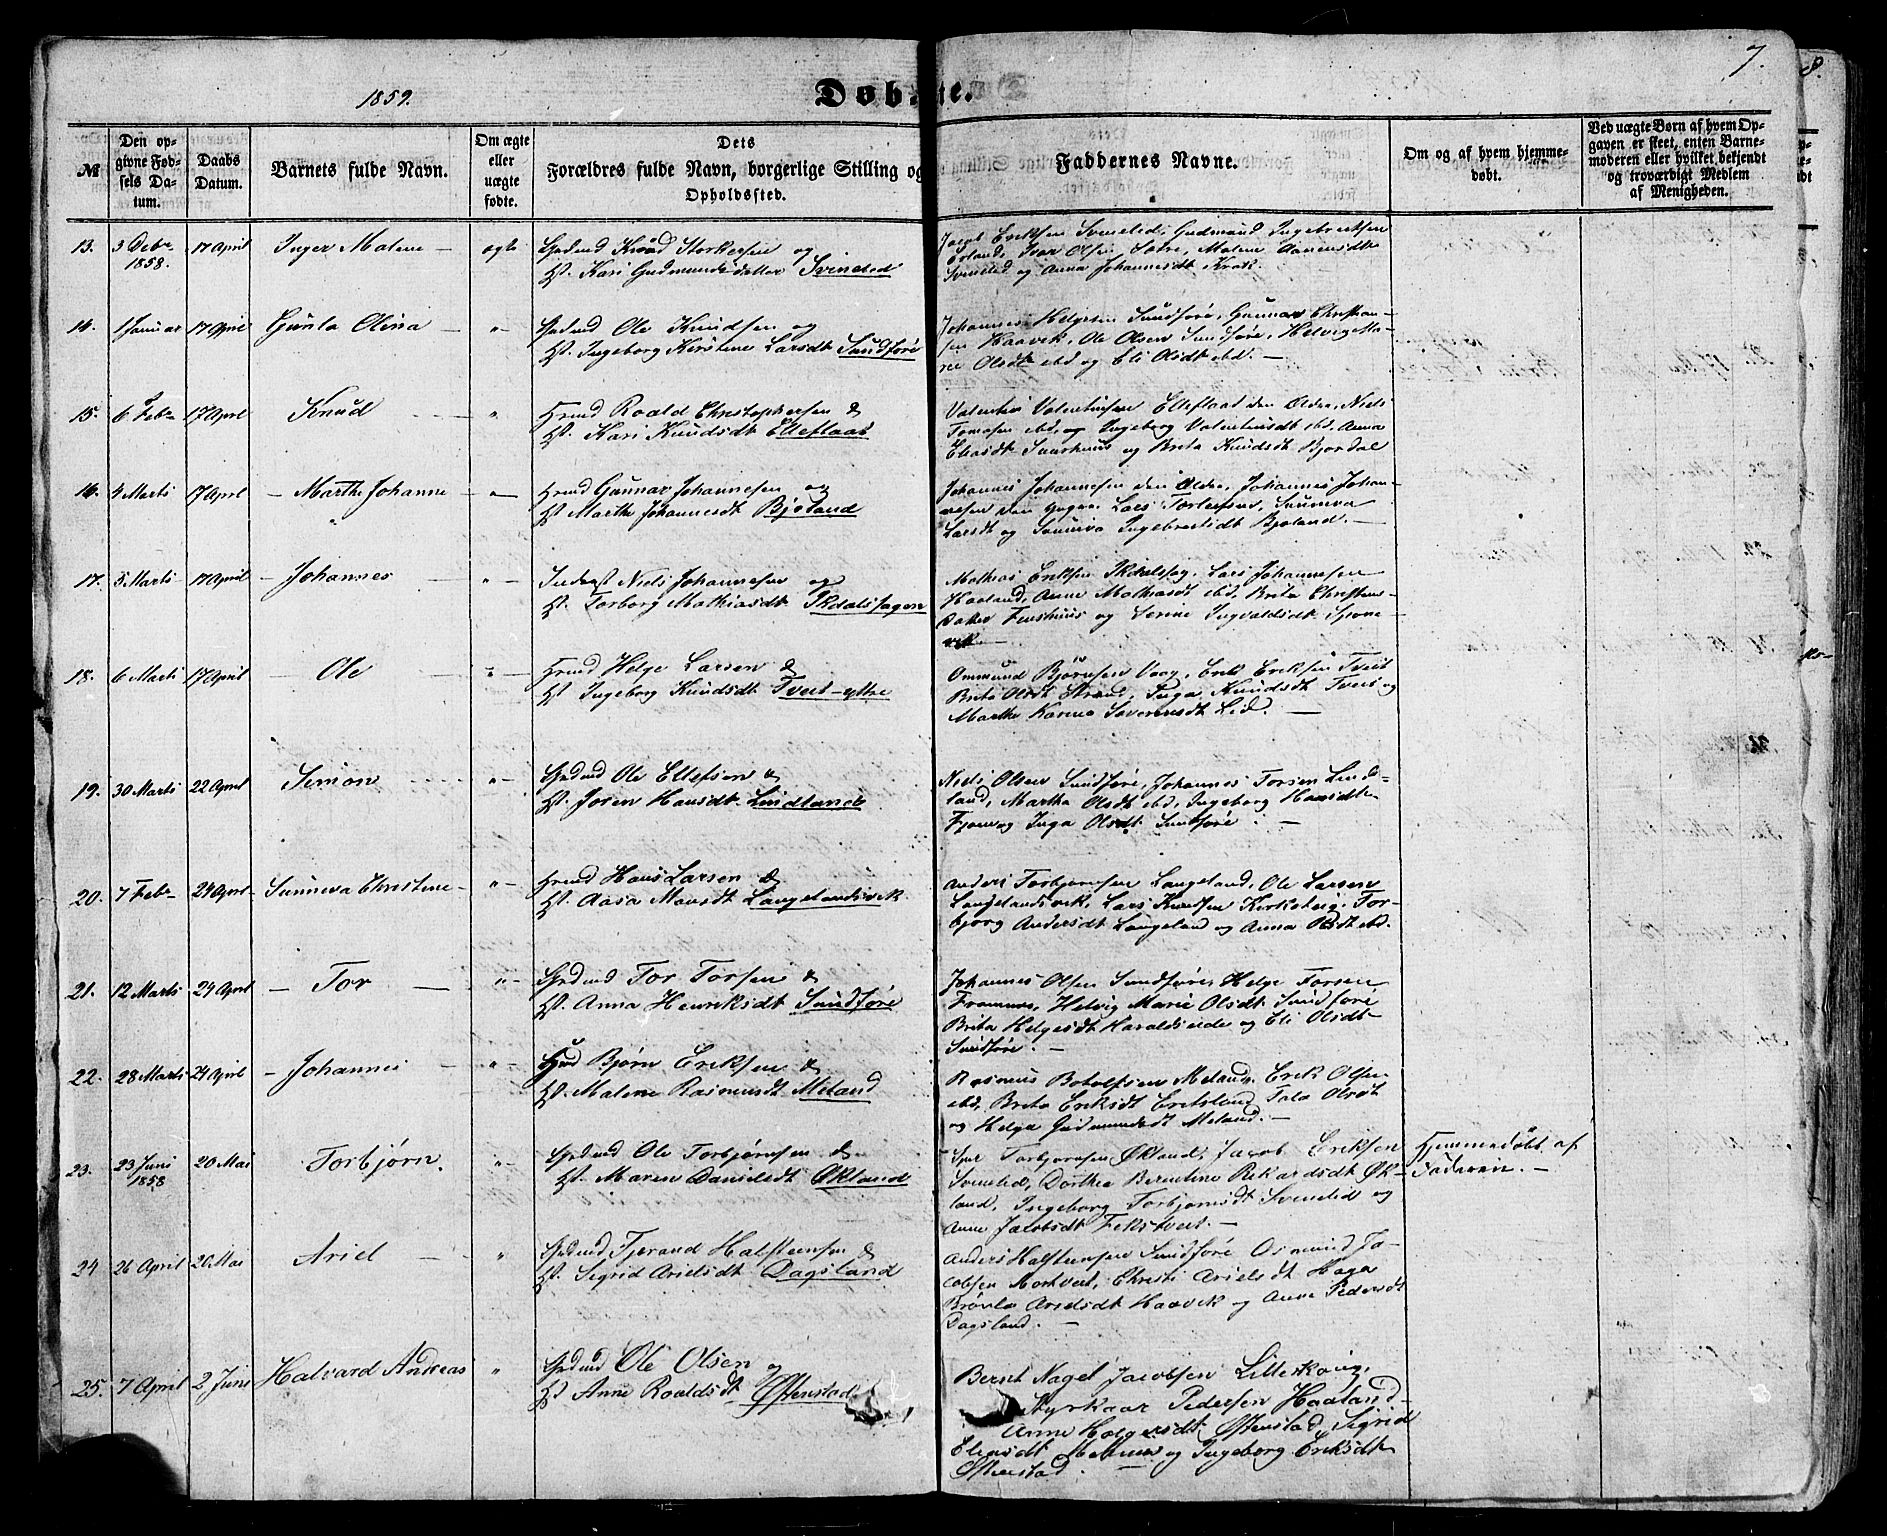 7.
8.
1859.
Døbte.
№
Den opgivne Fødsels Datum.
Daabs Datum.
Barnets fulde Navn.
Om ægte eller uægte fødte.
Dets Forældres fulde Navn, borgerlige Stilling og Opholdssted.
Faddernes Navne.
Om og af hvem hjemmedøbt.
Ved uægte Børn af hvem Opgaven er skeet, enten Barnemoderen eller hvilket bekjendt og troværdigt Medlem af Menigheden.
13. 3 Debr 1858. 17 April Inger Malene – ægte
Gbdmd Knud Storkersen og
Hst. Kari Gudmundsdatter Svineled
Jacob Eriksen Svineled, Gudmund Ingebrektsen
Ivar Olsen Malene
Svineled og Anna Johannesdt
14. 1 Januar 17 April Gunla Olina – "–
Gbdmd Ole Knudsen og
Hst. Ingeborg Kirstine Larsdt Sundføre
Johannes Helgesen Sundføre, Gunnar Christian-
sen Haavik, Ole Olsen Sundføre, Helvig Ma-
rie Olsdt ebd og Eli Olsdt ebd. –
15. 6 Febr 17 Aprl Knud "
Hmd Roald Christophersen &
Hst. Kari Knudsdt Elleflaat
Valentin Valentinsen Elleflaat den Ældre, Niels
Tomasen ebd, og Ingeborg Valentinsdt ebd, Anna
Eliasdt og Brita Knudsdt Bjordal
16. 4 Marts 17 Aprl – Marthe Johanne – "–
Hmd Gunnar Johannesen og
Hst Marthe Johannesdt Bjoland
Johannes Johannesen den Ældre, Johannes Johan-
nesen den Yngre, Lars Sunniva
Larsdt og Sunniva Ingebretsdt Bjoland. –
17. 5 Marts 17 April – Johannes – "–
Inderst Niels Johannesen og
Hst. Torborg Mathiasdt Ikdalshagen
Mathias Eriksen Lars Johannesen
Haaland, Anne Mathiasdt ebd, Brita Christens-
datter og Serine Ingvaldsdt
18. 6 Marts 17 April – Ole – "–
Hmd Helge Larsen &
Hst Ingeborg Knudsdt Tveit-ytre
Ommund Bjørnsen Vaag, Erik Eriksen Tveit
Brita Olsdt Inga Knudsdt Tveit og
Marthe Karina Lid. –
19. 30 Marts 22 April Simon "–
Gbdmd Ole Ellefsen &
Hst. Joren Hansdt Lindland
Niels Olsen Sundføre, Johannes Torsen Lind-
land, Martha Olsdt ebd, Ingeborg Hansdt
og Inga Olsdt Sundføre. –
20. 7 Febr 24 April Sunneva Christine – "–
Hmd Hans Larsen &
Hst. Aasa Monsdt Langelandsvik
Anders Torbjørnsen Langeland, Ole Larsen
Langelandsvik, Lars Knudsen Tor-
bjorg Andersdt Langeland og Anna Olsdt ebd.
21. 12 Marts 24 April – Tor – "–
Gbdmd Tor Torsen &
Hst. Anna Henriksdt Sundføre
Johannes Olsen Sundføre, Helge Torsen
Helvig Marie Olsdt Sundføre
Brita Helgesdt Haraldseide og Eli Olsdt
Sundføre. –
22. 28 Marts 24 April – Johannes – "–
Bjørn Eriksen &
Hst. Malene Rasmusdt Meland
Rasmus Botolfsen Meland, Erik Olsen
ebd, Brita Eriksdt Olsdt
og Helga Gudmundsdt Meland. –
23. 23 Juni 1858 20 Mai Torbjørn. "–
Gbdmd Ole Torbjørnsen &
Hst. Maren Danieldt Økland
Torbjørnsen Økland, Jacob Eriksen
Svineled, Dorthea Berentine Rikardsdt Øk-
land, Ingeborg Torbjørnsdt Svineled og
Anne Jacobsdt –
Hjemmedøbt af
Faderen. –
24 26 April 20 Mai Ariel – "
Gbdmd Tjerand Halsteensen &
Hst. Sigrid Arielsdt Dagsland
Anders Halsteensen Sundføre Osmund Ja-
cobsen Christi Arielsdt
Arielsdt Haavik og Anne Pedersdt
Dagsland. –
25. 7 April 2 Juni Halvard Andreas "
Gbdmd Ole Olsen og
Hst Anne Roaldsdt Østenstad
Bernt Nagel Jacobsen
Styrkaar Pedersen Haaland
Anne Holgersdt Østenstad, Sigrid
Eliasdt og Ingeborg Eriksdt
Østenstad. –